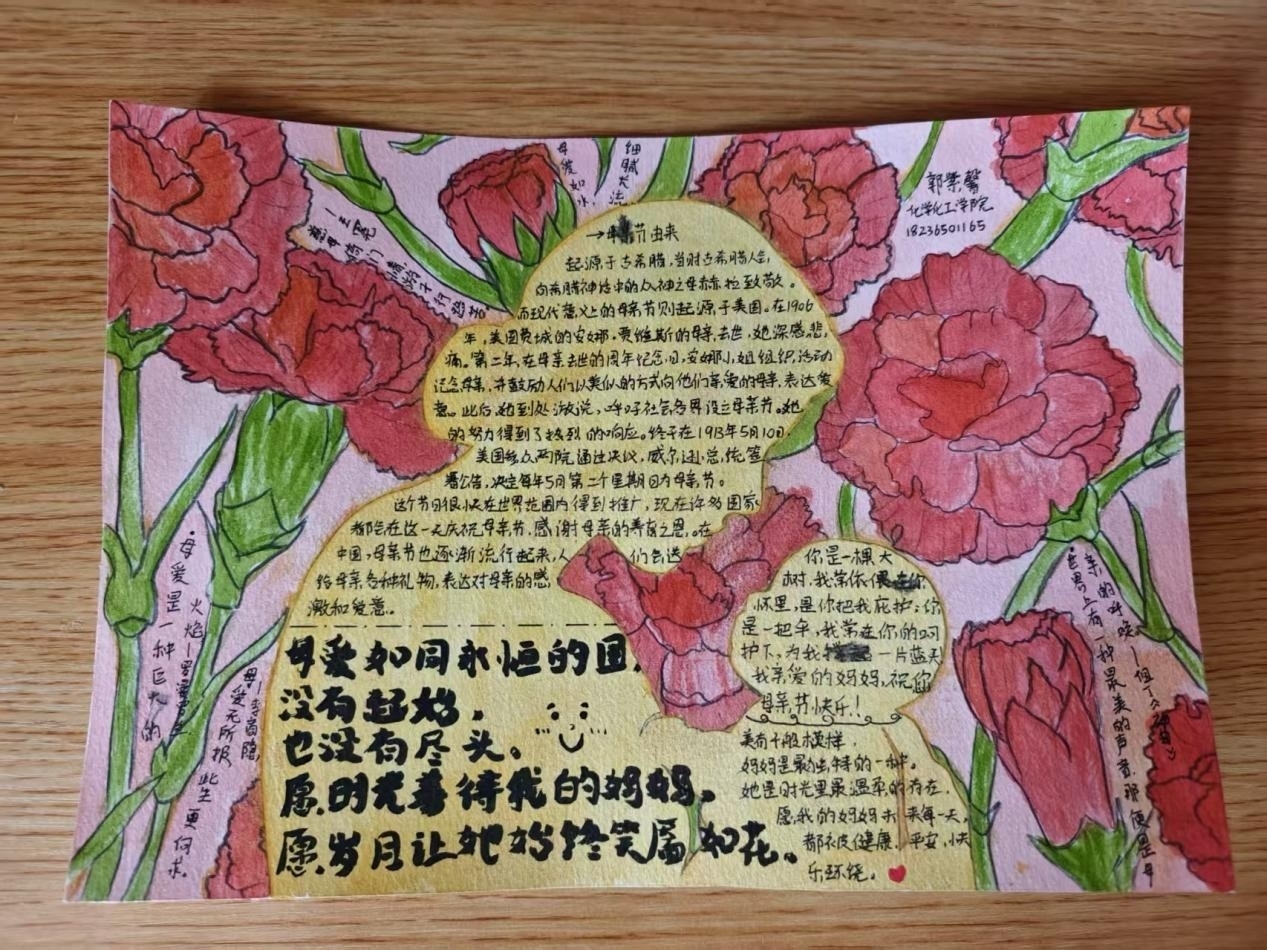 母爱如水，
细腻长流
郭紫馨
化学化工学院
18236501165
慈母倚门情，游子行路苦
→母亲节由来
起源于古希腊，当时古希腊人会，
向希腊神话中的众神之母赫拉致敬。
而现代意义上的母亲节则起源于美国。在1906
年，美国费城的安娜·贾维斯的母亲去世，她深感悲
痛。第二年，在母亲去世的周年纪念日，安娜小姐组织活动
纪念母亲，并鼓励人们以类似的方式向他们亲爱的母亲，表达爱
意。此后，她到处游说，呼吁社会各界设立母亲节。她
的努力得到了热烈的响应。终于在1913年5月10日，
美国参众两院通过决议，威尔逊总统签
署公告，决定每年5月第二个星期日为母亲节。
这个节日很快在世界范围内得到推广，现在许多国家
都能在这一天庆祝母亲节，感谢母亲的养育之恩。在
中国，母亲节也逐渐流行起来，人们会送
给母亲各种礼物，表达对母亲的感
激和爱意。
母爱如同永恒的圆，
没有起始，
也没有尽头。
愿时光善待我的妈妈，
愿岁月让她始终笑靥如花。
你是一棵大
树，我常依偎在你
怀里，是你把我庇护；你
是一把伞，我常在你的呵
护下，为我一片蓝天
我亲爱的妈妈，祝您
母亲节快乐！
美有千般模样，
妈妈是最独特的一种。
她是时光里最温柔的存在，
愿我的妈妈未来每一天，
都被健康、平安、快
乐环绕。
母爱是一种巨大的
火焰—罗曼罗兰
母爱无所报，此生更何求。
—李商隐
世界上有一种最美的声音，那便是母
亲的呼唤—但丁《神曲》